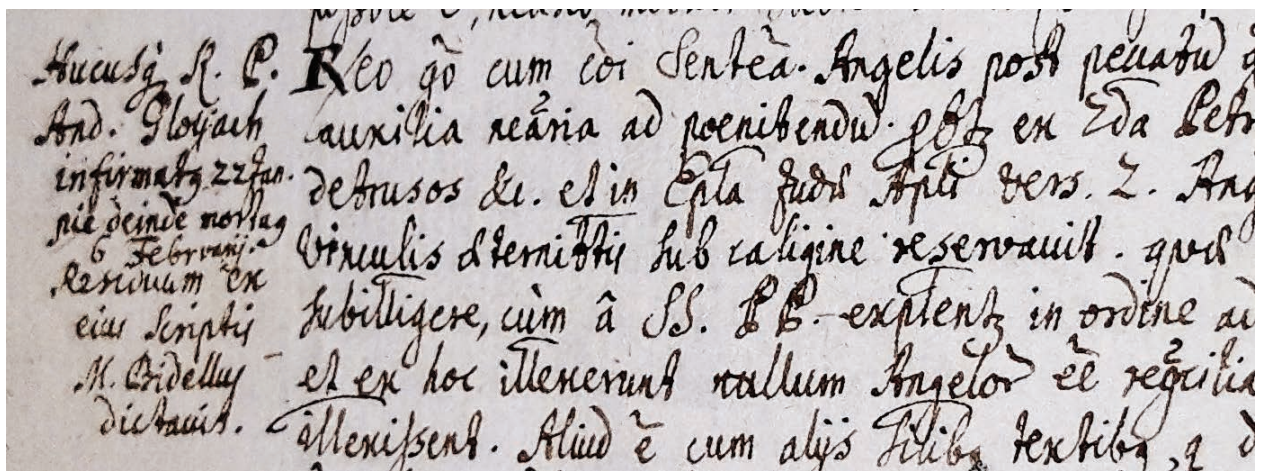 Hucusq; R. P.
And. Gloyach
infirmatq 22 Jan.
pie deinde mortuq
6 Februarij.
Residuum ex
eius scriptis
M. Bidellus
dictavit.
Reo gō cum cōi Sentēa. Angelis post peccatū
auxilia neāria ad poenitendū. ex 2da Petr
detrusos &c. et in Epla Judæ Apli vers. 2. Ang
vinculis æternittis sub caligine reservavit. quæ
subillligere, cùm â SS. PP. explentz in ordine ad
et ex hoc illexerunt nullum Angelor ēē
illexissent. Aliud ē cum alijs silibq textibq, q